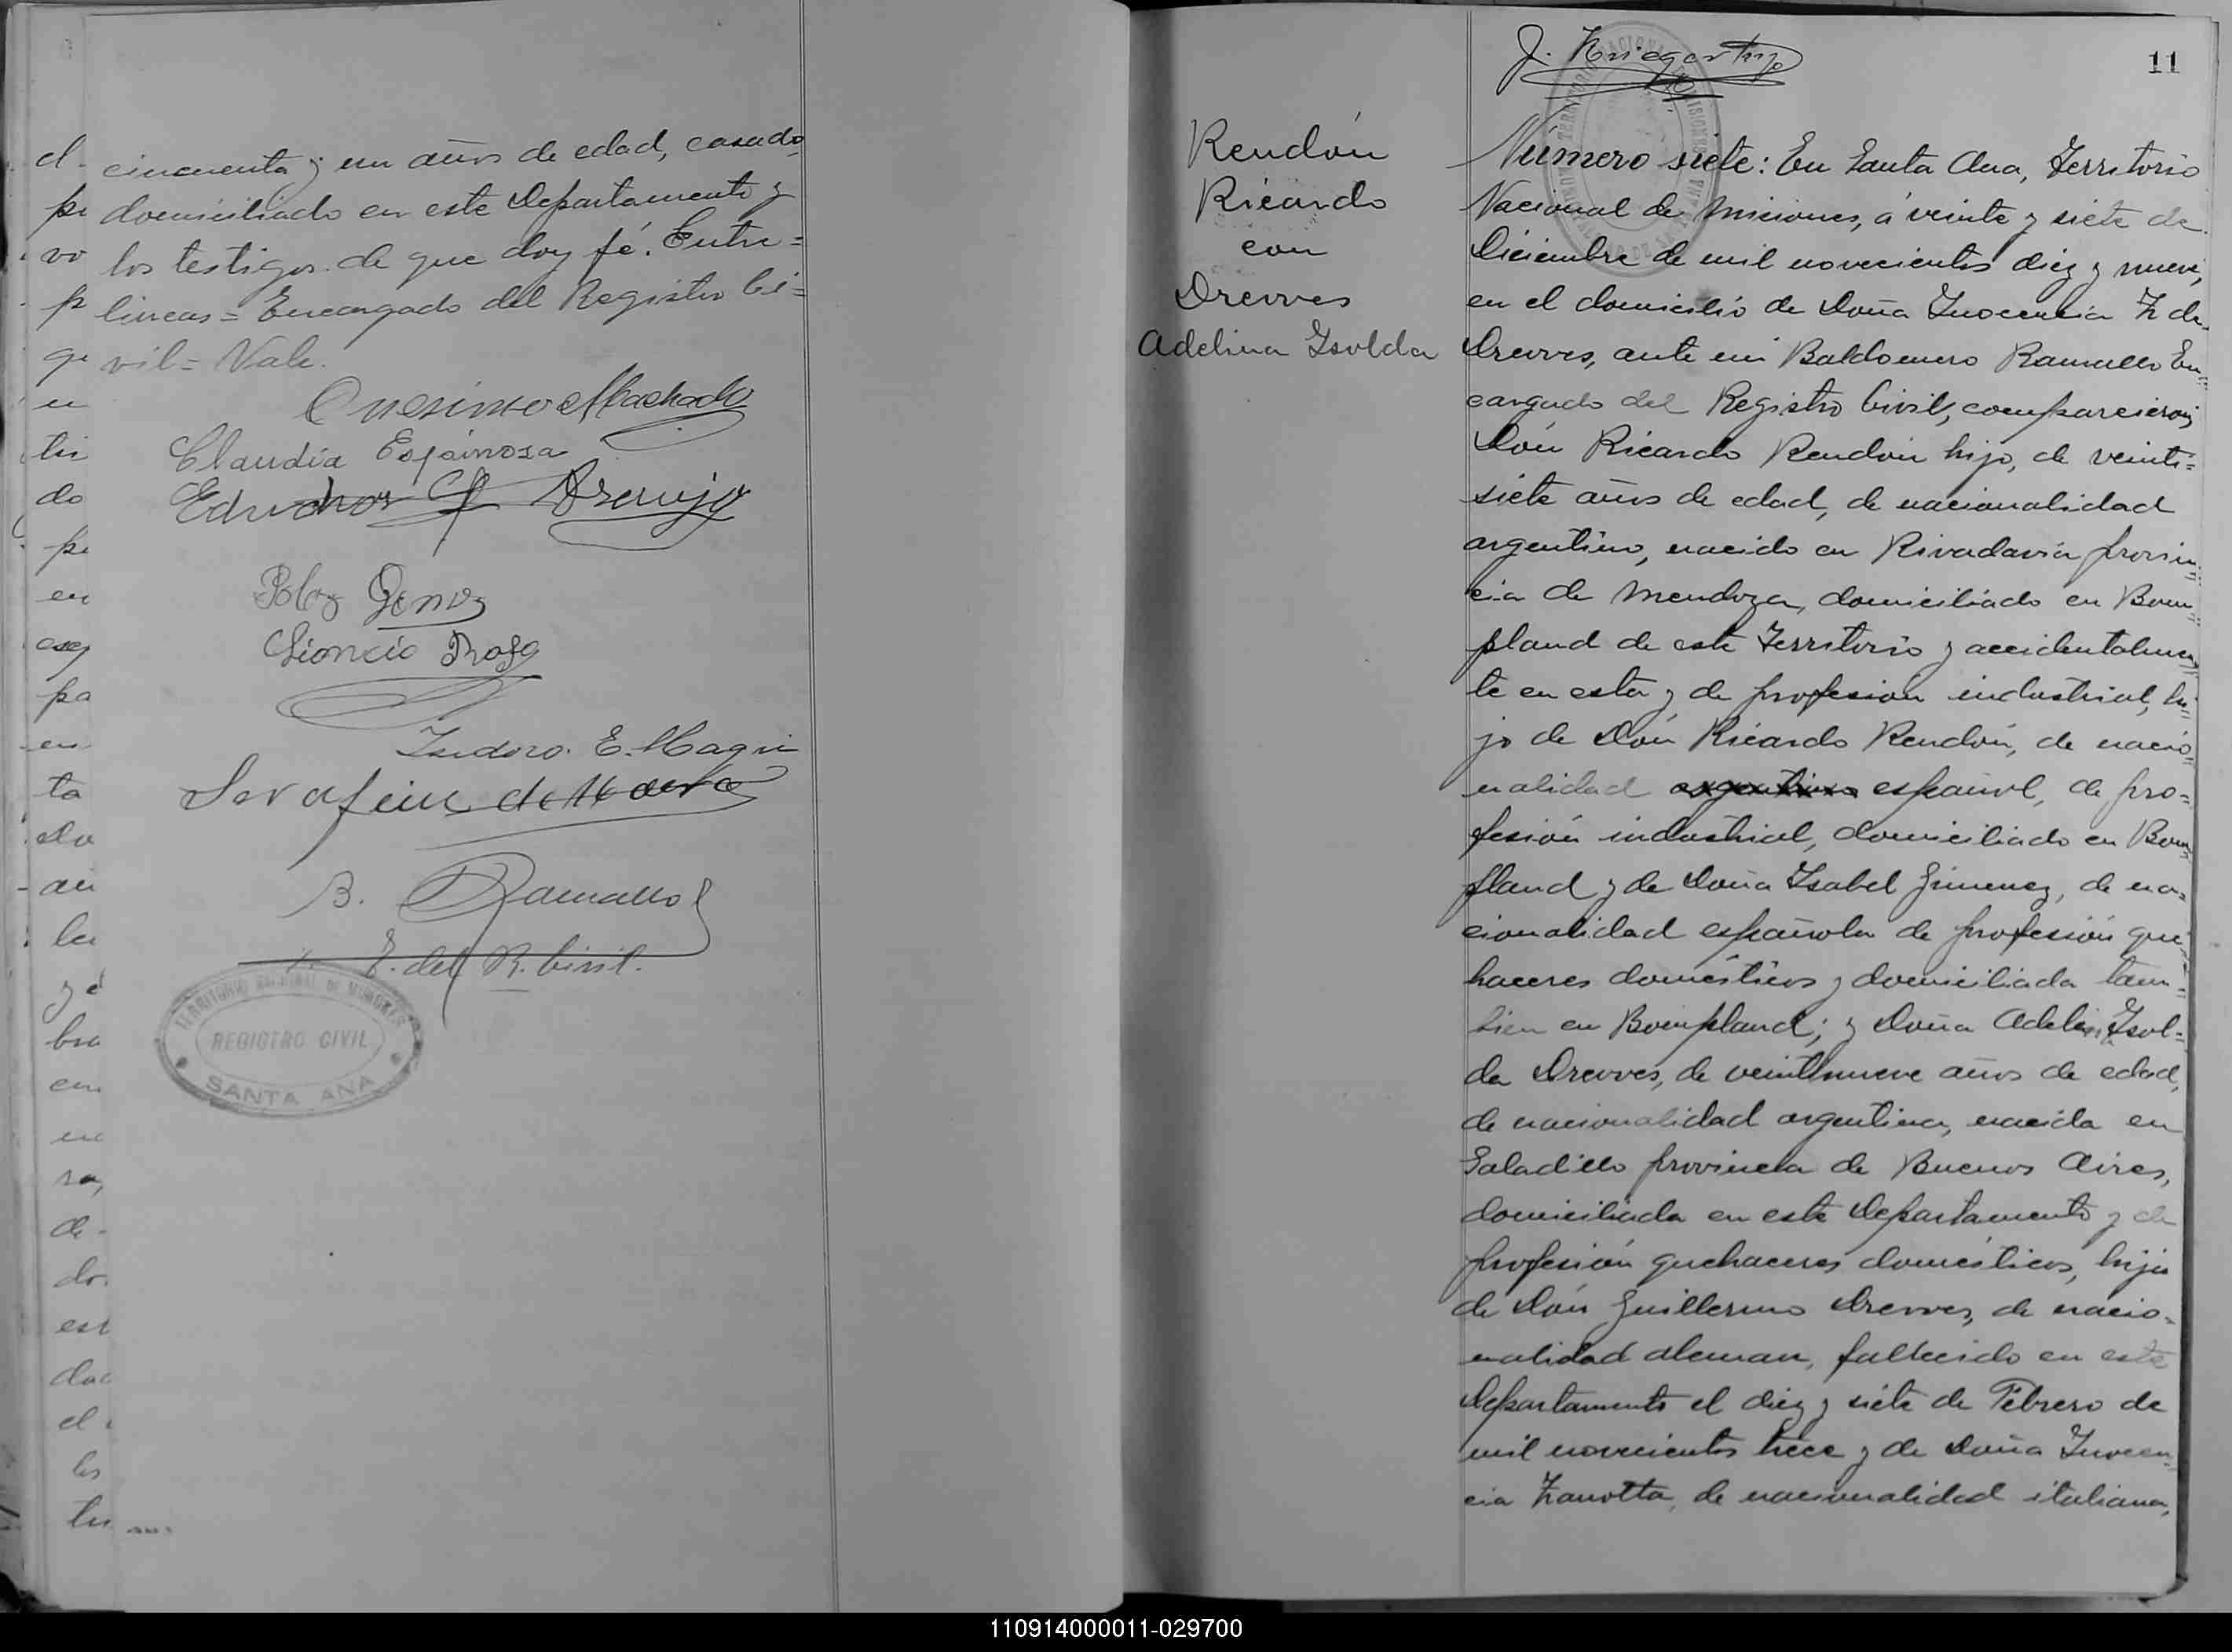 cincuenta y un años de edad, casado,
domiciliado en este Departamento y
los testigos de que doy fé. Entre=
lineas = Encargado del Registro Ci=
vil = Vale.
Onesimo Machado
Claudia Espinosa
Araujo
Isidoro. E. Magri
B. Ramallo
E. del R. Civil.
TERRITORIO NACIONAL DE MISIONES
REGISTRO CIVIL
SANTA ANA
d.
pi
vo
p
qe
en
tri
do
pe
en
pa
en
ta
Do
au
la
y e
bro
en
ra,
de
do.
est
dad
el
los
11
Rendón
Ricardo
con
Drewes
Adelina Isolda
Número siete: En Santa Ana, Territorio
Nacional de Misiones, á veinte y siete de
Diciembre de mil novecientos diez y nueve,
en el domicilio de Doña Inocencia Z de
Drewes, ante mi Baldomero Ramallo En=
cargado del Registro Civil, comparecieron;
Dón Ricardo Rendón hijo, de veinti=
siete años de edad, de nacionalidad
argentino, nacido en Rivadavia provin=
cia de Mendoza, domiciliado en Bom=
pland de este Territorio y accidentalmen=
te en esta y de profesion industrial, hi=
jo de Dón Ricardo Rendón, de nacio
nalidad argentino español, de pro=
fesión industrial, domiciliado en Bom=
pland y de Doña Isabel Gimenez, de na=
cionalidad española de profesión que
haceres domésticos y domiciliada tam=
bien en Bompland; y Doña Adelina Isol=
da Drewes, de veintinueve años de edad,
de nacionalidad argentina, nacida en
Saladillo provincia de Buenos Aires,
domiciliada en este Departamento y de
profesión quehaceres domésticos, hija
de Dón Guillermo Drewes, de nacio=
nalidad aleman, fallecido en este
Departamento el diez y siete de Febrero de
mil novecientos trece y de Doña Inocen=
cia Zanotta, de nacionalidad italiana,
110914000011-029700